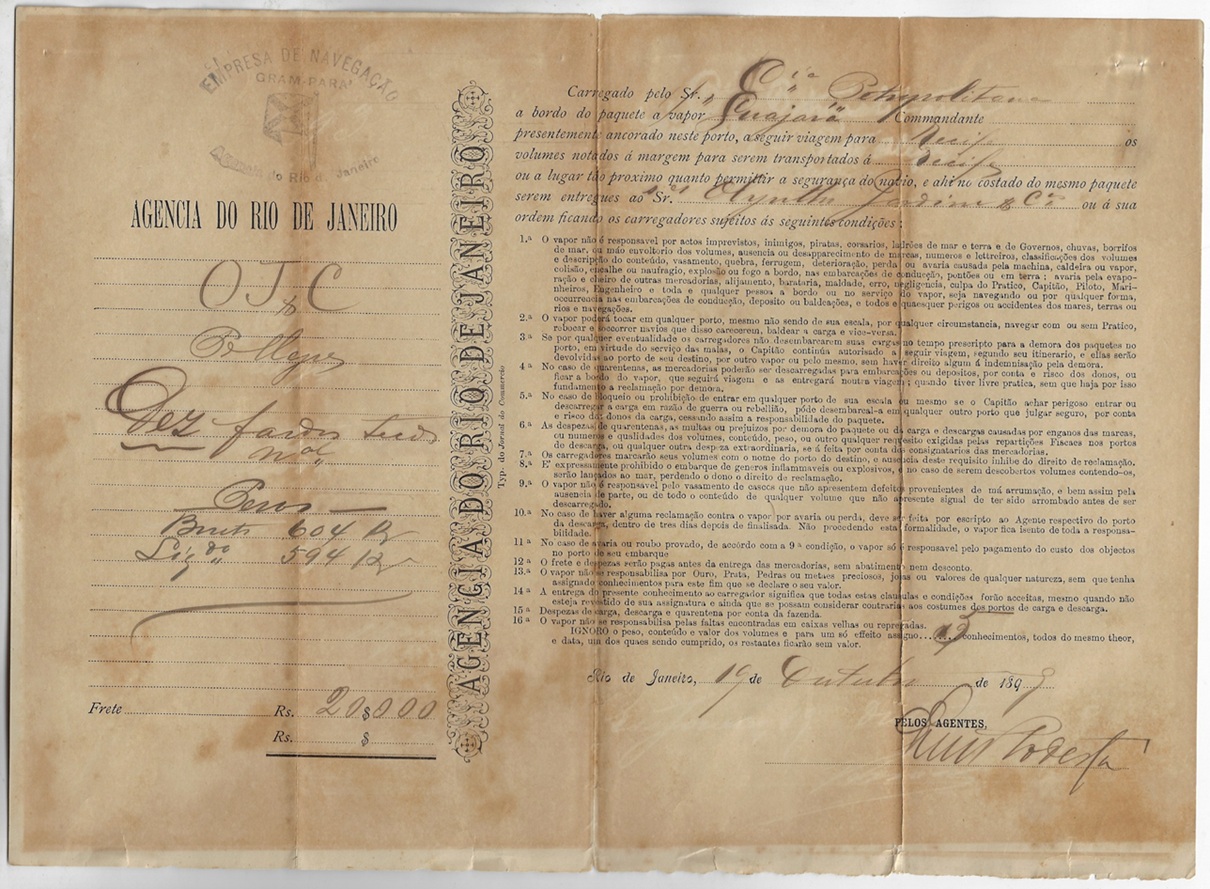 EMPRESA DE NAVEGAÇÃO
GRAM-PARÁ
do Rio de Janeiro
AGENCIA DO RIO DE JANEIRO
OJC
Dez fardos
Peso
Bruto 604 K
Liq.do 594 K
Frete Rs. 20$000
Rs. $
AGENCIA DO RIO DE JANEIRO
Typ. do Jornal do Commercio
Carregado pelo Sr. Cia Petropolitana
a bordo do paquete a vapor "Guajará" Commandante
presentemente ancorado neste porto, a seguir viagem para Recife os
volumes notados á margem para serem transportados á Recife
ou a lugar tão próximo quanto permittir a segurança do navio, e ahi no costado do mesmo paquete
serem entregues ao Sr. & Cª ou á sua
ordem ficando os carregadores sujeitos ás seguintes condições:
1.ª O vapor não é responsavel por actos imprevistos, inimigos, piratas, corsarios, ladrões de mar e terra e de Governos, chuvas, borrifos
de mar, ou máo envoltorio dos volumes, ausencia ou desapparecimento de marcas, numeros e lettreiros, classificações dos volumes
e descripção do conteúdo, vasamento, quebra, ferrugem, deterioração, perda ou avaria causada pela machina, caldeira ou vapor,
colisão, encalhe ou naufragio, explosão ou fogo a bordo, nas embarcações de conducção, pontões ou em terra; avaria pela evapo-
ração e cheiro de outras mercadorias, alijamento, barataria, maldade, erro, negligencia, culpa do Pratico, Capitão, Piloto, Mari-
nheiros, Engenheiro e toda e qualquer pessoa a bordo ou no serviço do vapor, seja navegando ou por qualquer forma,
occurrencia nas embarcações de conducção, deposito ou baldeações, e todos e quaesquer perigos ou accidentes dos mares, terras ou
rios e navegações.
2.ª O vapor poderá tocar em qualquer porto, mesmo não sendo de sua escala, por qualquer circumstancia, navegar com ou sem Pratico,
rebocar e soccorrer navios que disso carecerem, baldear a carga e vice-versa.
3.ª Se por qualquer eventualidade os carregadores não desembarcarem suas cargas no tempo prescripto para a demora dos paquetes no
porto, em virtude do serviço das malas, o Capitão continúa autorisado a seguir viagem, segundo seu itinerario, e ellas serão
devolvidas ao porto de seu destino, por outro vapor ou pelo mesmo, sem haver direito algum á indemnisação pela demora.
4.ª No caso de quarentenas, as mercadorias poderão ser descarregadas para embarcações ou depositos, por conta e risco dos donos, ou
ficar a bordo do vapor, que seguirá viagem e as entregará noutra viagem; quando tiver livre pratica, sem que haja por isso
fundamento a reclamação por demora.
5.ª No caso de bloqueio ou prohibição de entrar em qualquer porto de sua escala ou mesmo se o Capitão achar perigoso entrar ou
descarregar a carga em razão de guerra ou rebellião, póde desembarcal-a em qualquer outro porto que julgar seguro, por conta
e risco dos donos da carga, cessando assim a responsabilidade do paquete.
6.ª As despezas de quarentenas, as multas ou prejuizos por demora do paquete ou da carga e descargas causadas por enganos das marcas,
ou numeros e qualidades dos volumes, conteúdo, peso, ou outro qualquer requesito exigidas pelas repartições Fiscaes nos portos
de descarga, ou qualquer outra despeza extraordinaria, se á feita por conta dos consignatarios das mercadorias.
7.ª Os carregadores marcarão seus volumes com o nome do porto do destino, e ausencia deste requisito inhibe do direito de reclamação.
8.ª E' expressamente prohibido o embarque de generos inflammaveis ou explosivos, e no caso de serem descobertos volumes contendo-os,
serão lançados ao mar, perdendo o dono o direito de reclamação.
9.ª O vapor não é responsavel pelo vasamento de cascos que não apresentem defeitos provenientes de má arrumação, e bem assim pela
ausencia de parte, ou de todo o conteúdo de qualquer volume que não apresente signal de ter sido arrombado antes de ser
descarregado.
10.ª No caso de haver alguma reclamação contra o vapor por avaria ou perda, deve ser feita por escripto ao Agente respectivo do porto
da descarga, dentro de tres dias depois de finalisada. Não procedendo esta formalidade, o vapor fica isento de toda a responsa-
bilidade.
11ª No caso de avaria ou roubo provado, de accórdo com a 9ª condição, o vapor só é responsavel pelo pagamento do custo dos objectos
no porto de seu embarque
12ª O frete e despezas serão pagas antes da entrega das mercadorias, sem abatimento nem desconto.
13.ª O vapor não se responsabilisa por Ouro, Prata, Pedras ou metaes preciosos, joias ou valores de qualquer natureza, sem que tenha
assignado conhecimentos para este fim que se declare o seu valor.
14ª A entrega do presente conhecimento ao carregador significa que todas estas clausulas e condições forão acceitas, mesmo quando não
esteja revestido de sua assignatura e ainda que se possam considerar contrarias aos costumes dos portos de carga e descarga.
15ª Despezas de carga, descarga e quarentena por conta da fazenda.
16ª O vapor não se responsabilisa pelas faltas encontradas em caixas velhas ou repregadas.
IGNORO o peso, conteúdo e valor dos volumes e para um só effeito assigno conhecimentos, todos do mesmo theor,
e data, um dos quaes sendo cumprido, os restantes ficarão sem valor.
Rio de Janeiro, 19 de Outubro de 1899
PELOS AGENTES,